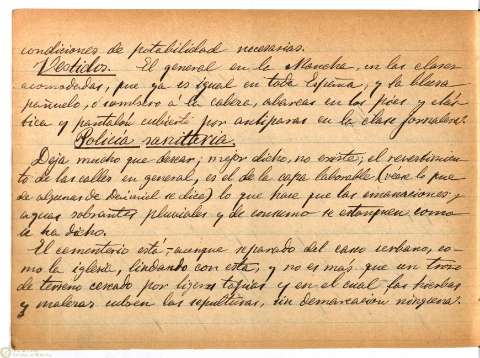 condiciones de potabilidad necesarias.
Vestidos. El general en la Mancha, en las clases
acomodadas, que ya es igual en toda España, y la blusa
pañuelo, ó sombrero á la cabeza, abarcas en los pies y
y pantalon cubierto por antiparas en la clase jornalera.
Policia sanitaria.
Deja mucho que desear; mejor dicho, no existe; el revestimien-
to de las calles en general, es el de la capa laborable (véase lo que
de algunas de Daimiel se dice) lo que hace que las emanaciones y
aguas sobrantes pluviales y de consumo se estanquen como
se ha dicho.
El cementerio está, aunque separado del casco urbano, co-
mo la iglesia, lindando con esta, y no es más que un trozo
de terreno cercado por ligeras tapias y en el cual las hierbas
y malezas cubren las sepulturas, sin demarcacion ninguna.